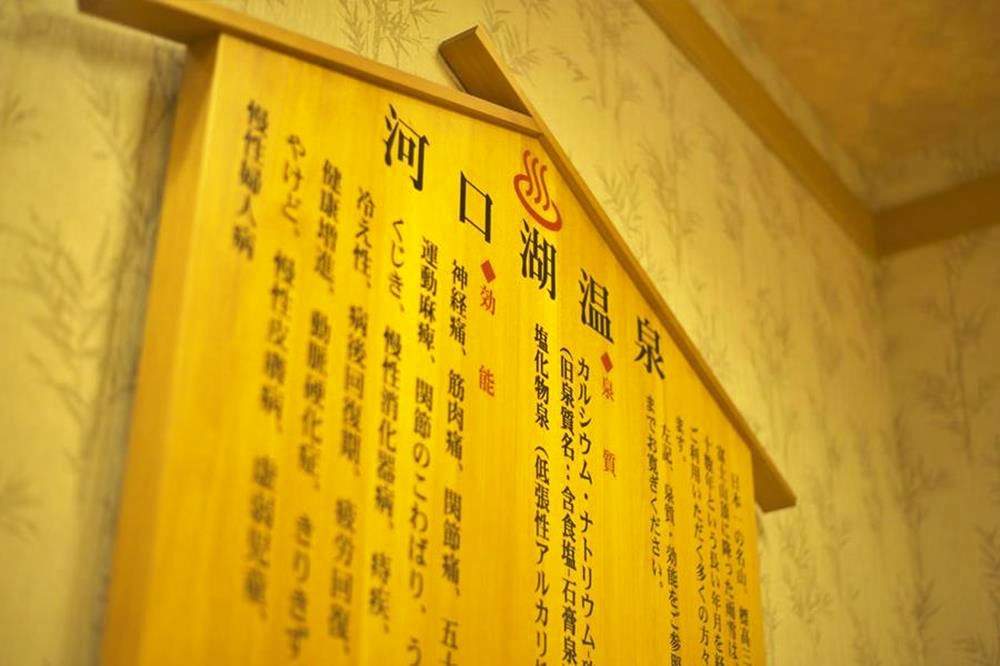 河口湖温泉
日本一の名山、標高三
富士山頂に降った雨雪は、
十数年という長い年月を経
ご利用いただく多くの方々
ます。
左記、泉質・効能をご参照
までお寛ぎください。
◆泉質
カルシウム・ナトリウム-
(旧泉質名:含食塩-石膏泉
塩化物泉(低張性アルカリ
◆効能
神経痛、筋肉痛、関節痛、五十
運動麻痺、関節のこわばり、う
くじき、慢性消化器病、痔疾、
冷え性、病後回復期、疲労回復、
健康増進、動脈硬化症、きりきず
やけど、慢性皮膚病、虚弱児童、
慢性婦人病